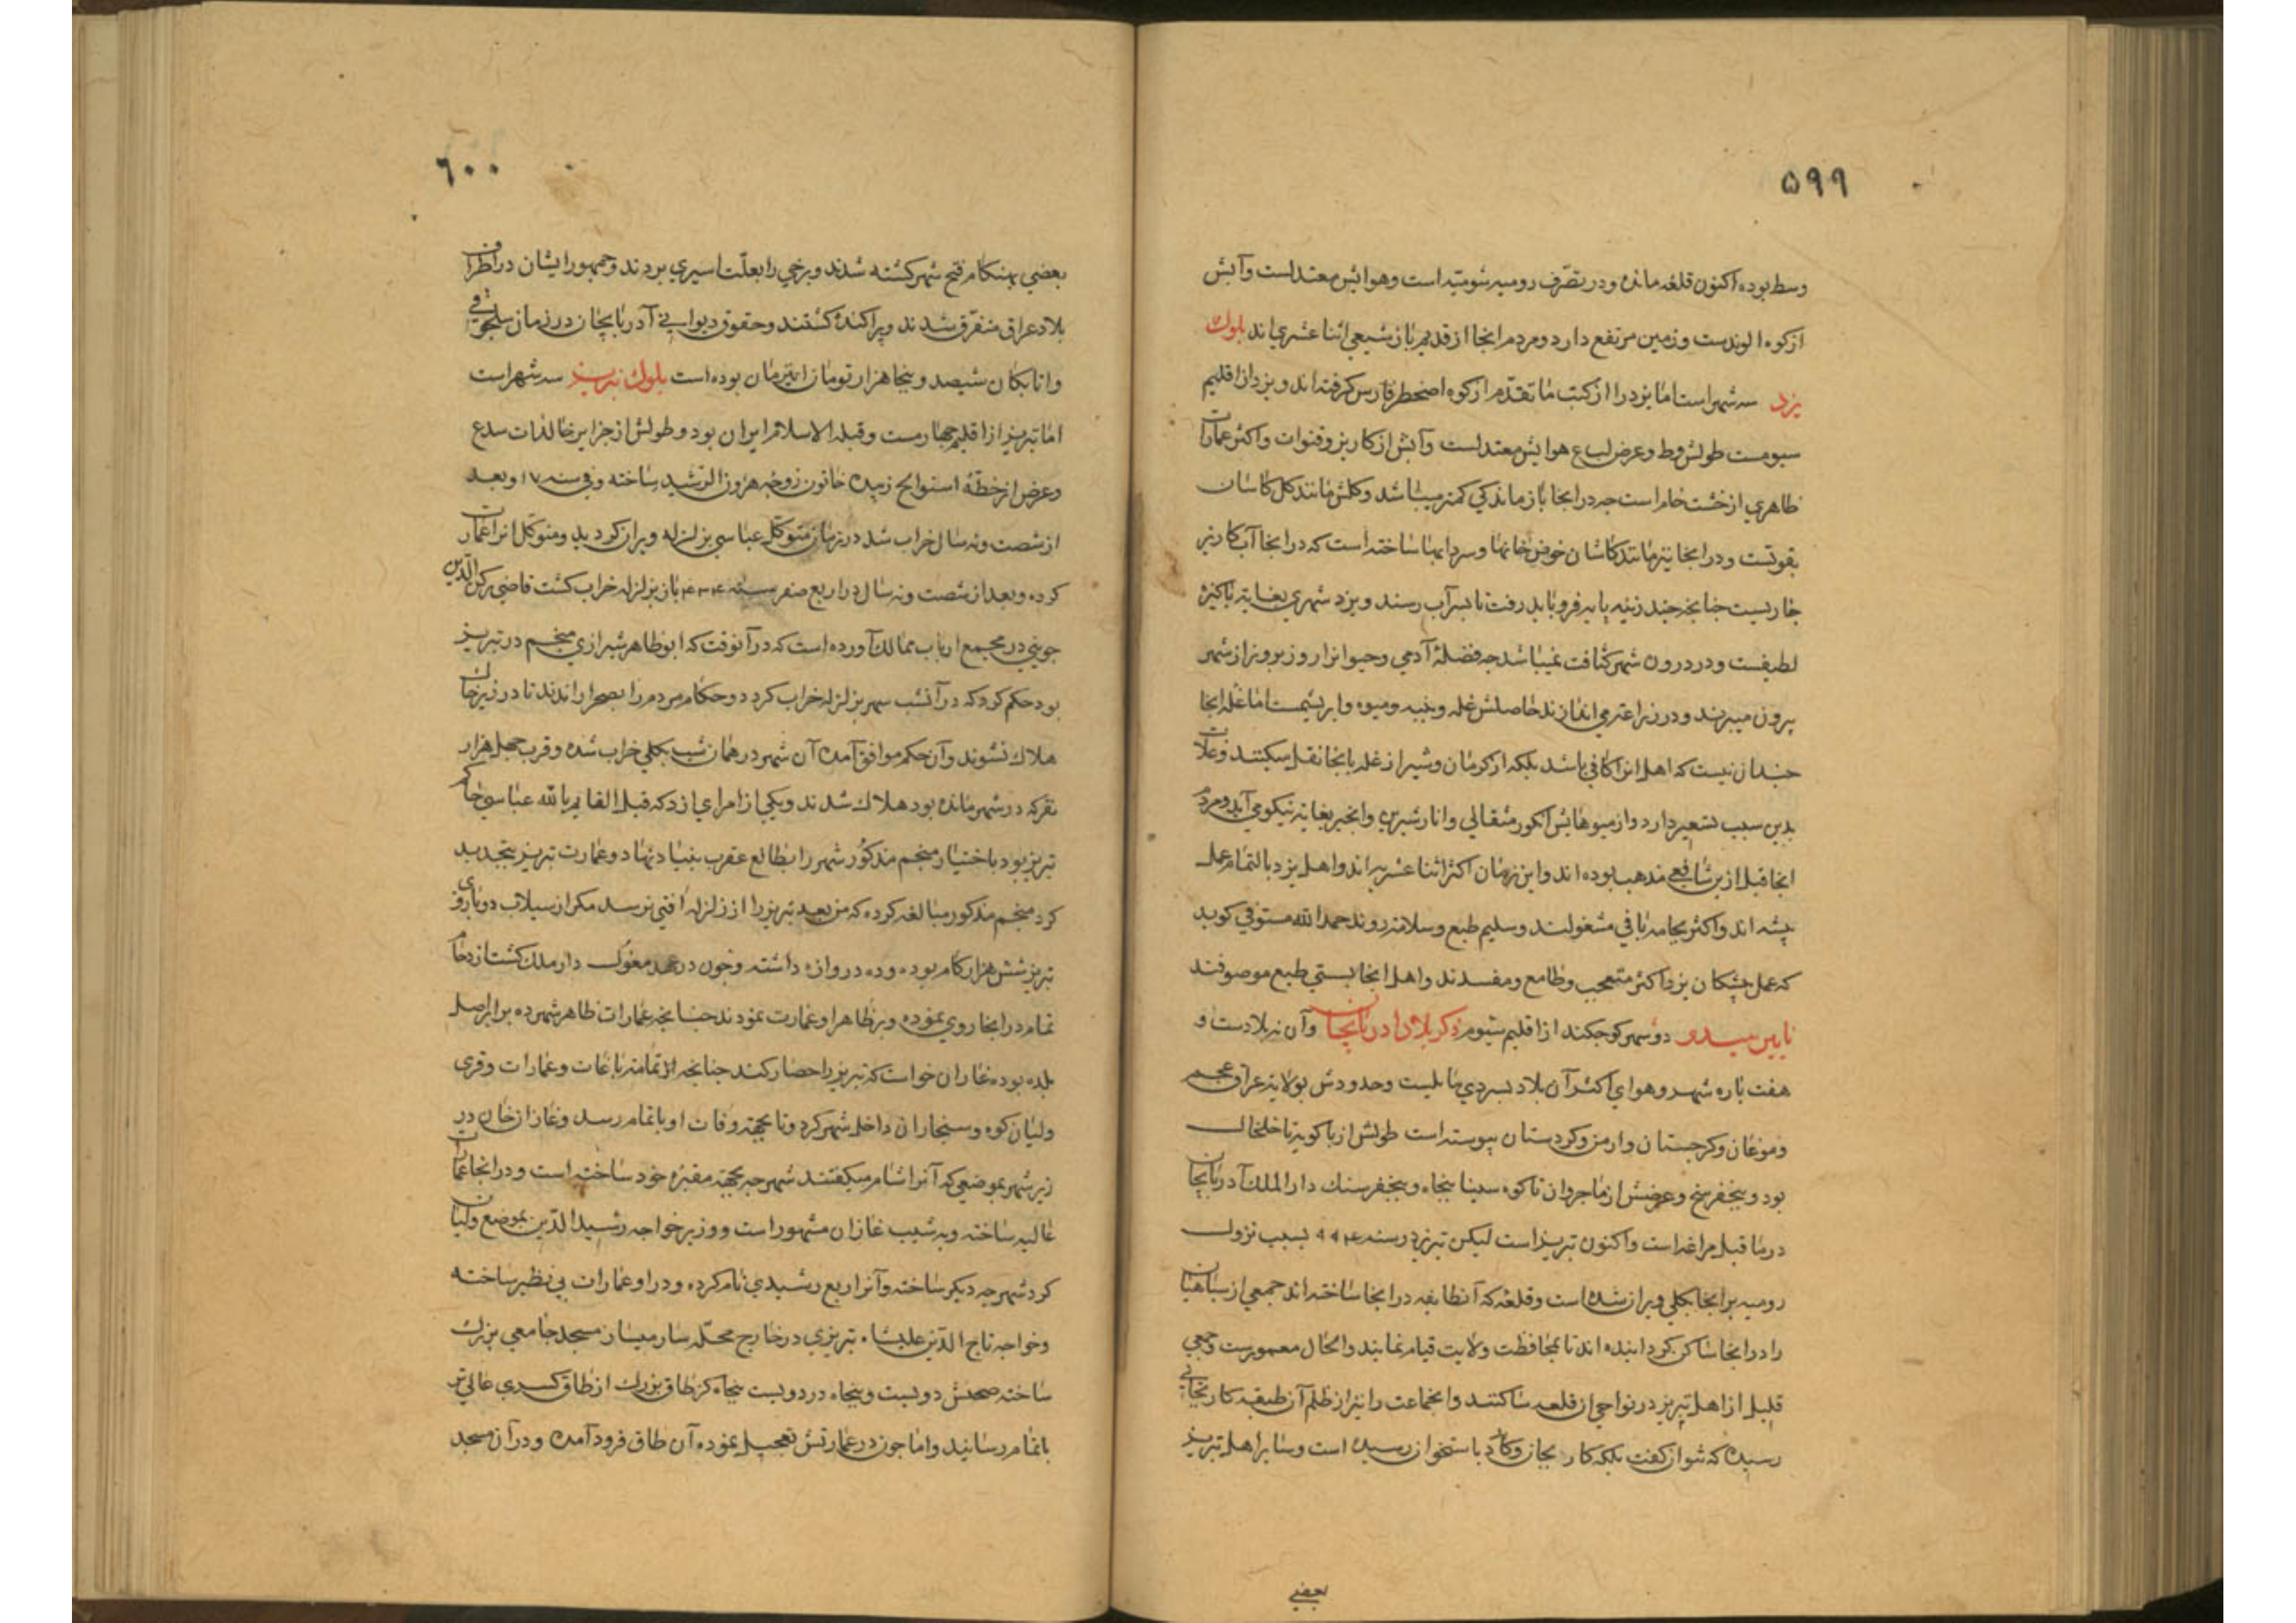 ۵۹۹
وسط بوده اکنون قلعه مانده و در تصرف رومیه شومیّه است و هوایش معتدلست و آبش
از کوه الوندست و زمین مرتفع دارد و مردم انجا از قدیم باز شیعی اثنا عشری اند بلوک
یزد سه شهر است اما یزد را از کتب ما تقدّم از کوه اصخطر فارس کرفته اند و یزد از اقلیم
سیومست طولش فط و عرض لب ع هوایش معتدلست و آبش از کاریز و قنوات و اکثر عمارات
ظاهری از خشت خام است جه در انجا باز ماندکی کمتر میباشد و کلش مانند کل کاشان
بقوتست و در انجا نیز مانند کاشان حوض خانها و سردابها ساخته است که در انجا آب کاریز
جاریست جنانجه جند زینه پایه فرو باید رفت تا بسر آب رسند و یزد شهری بغایة پاکیزه
لطیفست و در درون شهر کثافت نمیباشد جه فضلهٔ آدمی و حیوانرا روز بروز از شهر
بیرون میبرند و در زراعت می اندازند حاصلش غله و پنبه و میوه و ابریشمست اما غله انجا
جندان نیست که اهل انرا کافی باشد بلکه از کرمان و شیراز غله بانجا نقل میکنند و غلات
بدین سبب تسعیر دارد و از میوهایش انکور مثقالی و انار شیرین و انجیر بغایة نیکو می آید و مردم
انجا قبل ازین شافعی مذهب بوده اند و این زمان اکثر اثنا عشریه اند و اهل یزد بالتمام عمل
پیشه اند و اکثر بجامه بافی مشغولند و سلیم طبع و سلامت روند حمد الله مستوفی کوید
که عمل پیشکان یزد اکثر متعجب و طامع و مفسدند و اهل انجا بسستی طبع موصوفند
نایین میبدو دو شهر کوجکند از اقلیم سیوم ذکر بلاد آدربایجان و آن نه بلادست و
هفت باره شهر و هوای اکثر آن بلاد بسردی مایلست و حدودش بولایة عراق عجم
و موغان و کرجستان و ارمن و کردستان پیوسته است طولش از باکویة تا خلخال
بود و پنج فرسخ و عرضش از ماجروان تا کوه سینا پنجاه و پنج فرسنک دار الملک آدربایجان
در ما قبل مراغه است و اکنون تبریز است لیکن تبریز در سنه ۹۹۴ بسبب نزول
رومیه بر انجا بکلی ویران شده است و قلعه که آنطایفه در انجا ساخته اند جمعی از سپاهیان
را در انجا ساکن کردانیده اند تا بمحافظت ولایت قیام نمایند و الحال معمورست و جمعی
قلیل از اهل تبریز در نواحی ان قلعه ساکنند و انجماعت را نیز از ظلم آن طبقه کار بجائی
رسیده که نتوان کفت بلکه کار بجان و کارد باستخوان رسیده است و سایر اهل تبریز
بعضی
۶۰۰
بعضی بهنکام فتح شهر کشته شدند و برخی را بعلّت اسیری بردند و جمهور ایشان در اطراف
بلاد عراق متفرّق شدند و پراکنده کشتند و حقوق دیوانی آدربایجان در زمان سلجوقی
و اتابکان شیصد و پنجاه هزار تومان این زمان بوده است بلوک تبریز سه شهر است
اما تبریز از اقلیم جهارمست و قبلة الاسلام ایران بود و طولش از جزایر خالدات سدع
و عرض از خطهٔ استوا لح زبیده خاتون زوجه هرون الرشید ساخته و فی سنه ۱۷ و بعد
از شصت و نه سال خراب شد در زمان متوکل عباسی بزلزله ویران کردید و متوکل انرا عمارت
کرده و بعد از شصت و نه سال در اربع صفر سنه ۴۳۴ باز بزلزله خراب کشت قاضی رکن الدین
جوینی در مجمع ارباب ممالک آورده است که در آنوقت که ابو طاهر شیرازی منجم در تبریز
بود حکم کرد که در آنشب شهر بزلزله خراب کردد و حکام مردم را بصحرا راندند تا در زیر خاک
هلاک نشوند و آن حکم موافق آمده آن شهر در همان شب بکلی خراب شده و قرب جهل هزار
نفر که در شهر مانده بود هلاک شدند و یکی از امرای ازد که قبل القایم بالله عباسی حاکم
تبریز بود باختیار منجم مذکور شهر را بطالع عقرب بنیاد نهاد و عمارت تبریز بتجدید
کرد منجم مذکور مبالغه کرده که من بعد تبریز را از زلزله آفتی نرسد مکر از سیلاب دو باروی
تبریز شش هزار کام بوده و ده دروازه داشته و جون در عهد مغول دار ملک کشت ازدحام
تمام در انجا روی نموده و بر ظاهر او عمارت نمودند جنانجه عمارات ظاهر شهر ده برابر اصل
بلده بوده غازان خواست که تبریز را حصار کند جنانجه تمامة باغات و عمارات و قری
ولیان کوه و سنجاران داخل شهر کرد و تا بجهة وفات او باتمام رسد و غازان خان در
زیر شهر بموضعی که آنرا شام میکفتند شهرجه بجهة مقبره خود ساخته است و در انجا عمارات
عالیه ساخته و به شیب غازان مشهور است و وزیر خواجه رشید الدین بموضع ولیان
کرد شهرجه دیکر ساخته و آنرا ربع رشیدی نام کرده و در او عمارات بی نظیر ساخته
و خواجه تاج الدین علیشاه تبریزی در خارج محله سارمیسان مسجد جامعی بزرک
ساخته صحنش دویست و پنجاه در دویست پنجاه کز طاق بزرک از طاق کسری عالی تر
باتمام رسانید و اما جون در عمارتش تعجیل نموده آن طاق فرود آمده و در آن مسجد